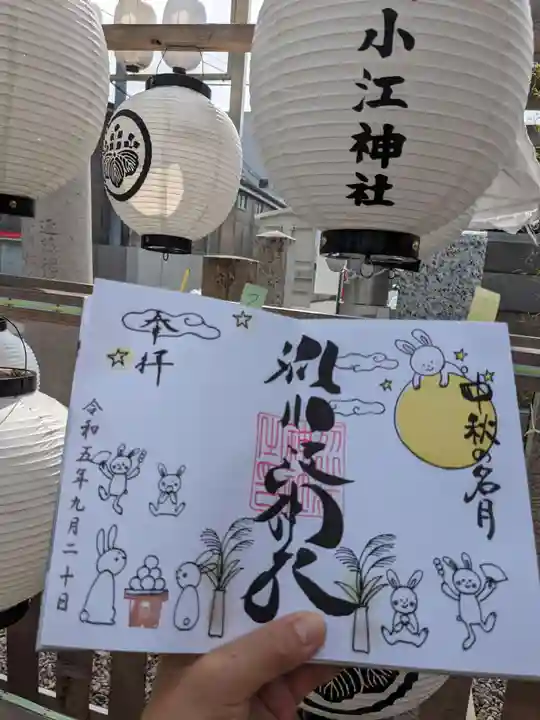 小江神社
中秋の名月
洲小江神社
奉拝
令和五年九月二十日